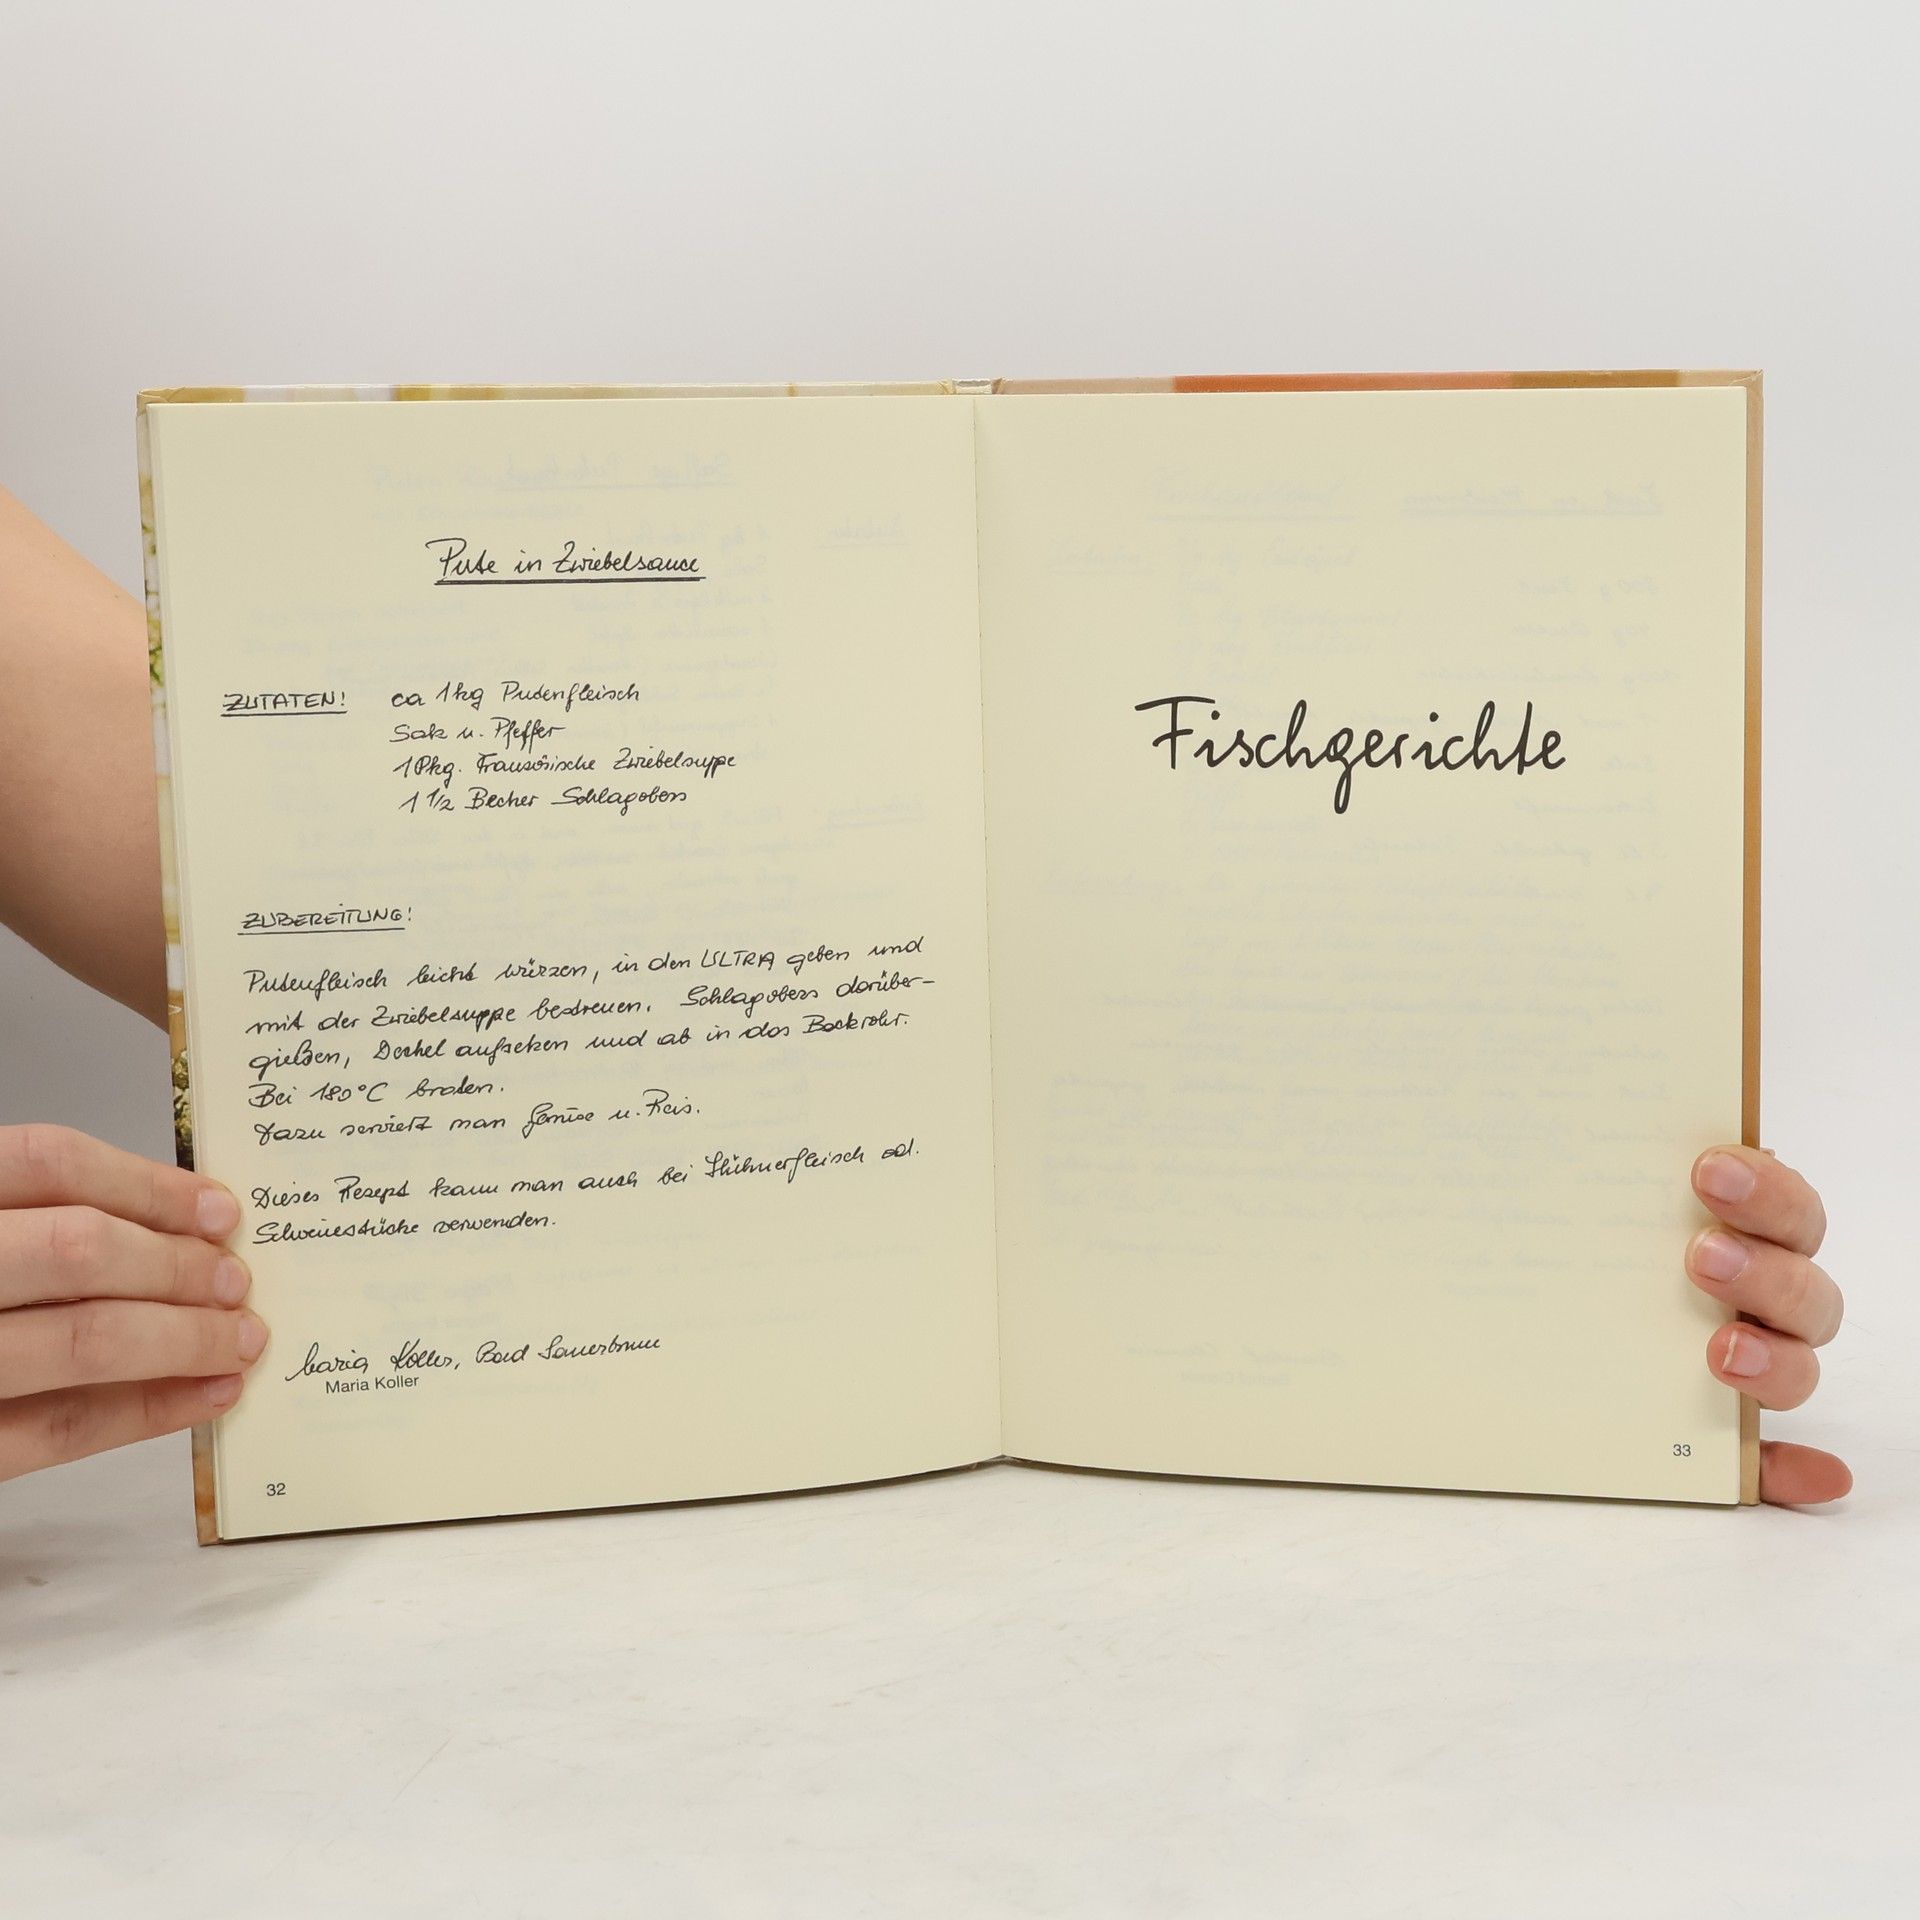 Pute in Zwiebelsauce
ZUTATEN!
ca 1kg Putenfleisch
Salz u. Pfeffer
1 Pkg. Französische Zwiebelsuppe
1 1/2 Becher Schlagobers
ZUBEREITUNG!
Putenfleisch leicht würzen, in den ULTRA geben und
mit der Zwiebelsuppe bestreuen. Schlagobers darüber-
gießen, Deckel aufsetzen und ab in das Backrohr.
Bei 180°C braten.
Dazu serviert man Gemüse u. Reis.
Dieses Rezept kann man auch bei Hühnerfleisch od.
Schweinestücke verwenden.
Maria Koller, Bad Sauerbrunn
Maria Koller
32
Fischgerichte
33